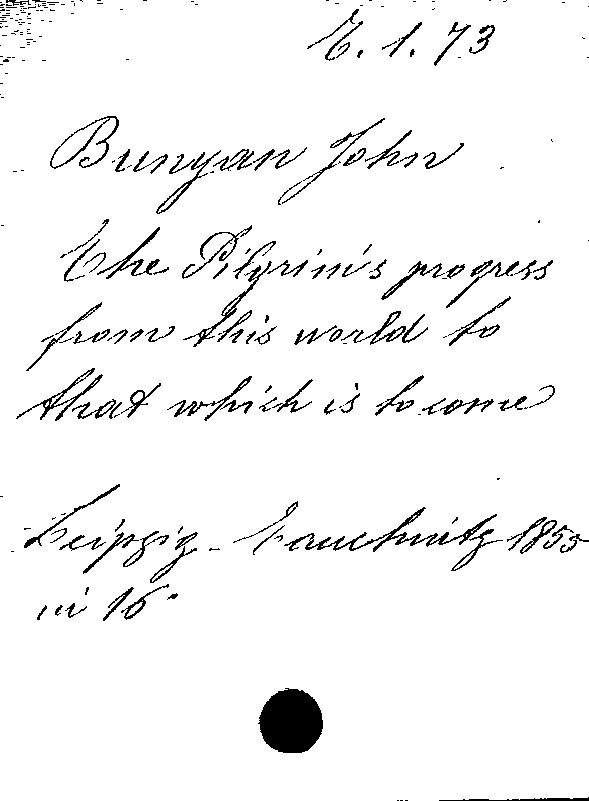 E. 1. 73
Bunyan John
The Pilgrim's progress
from this world to
that which is to come
Leipzig - Tauchnitz 1855
in 16°